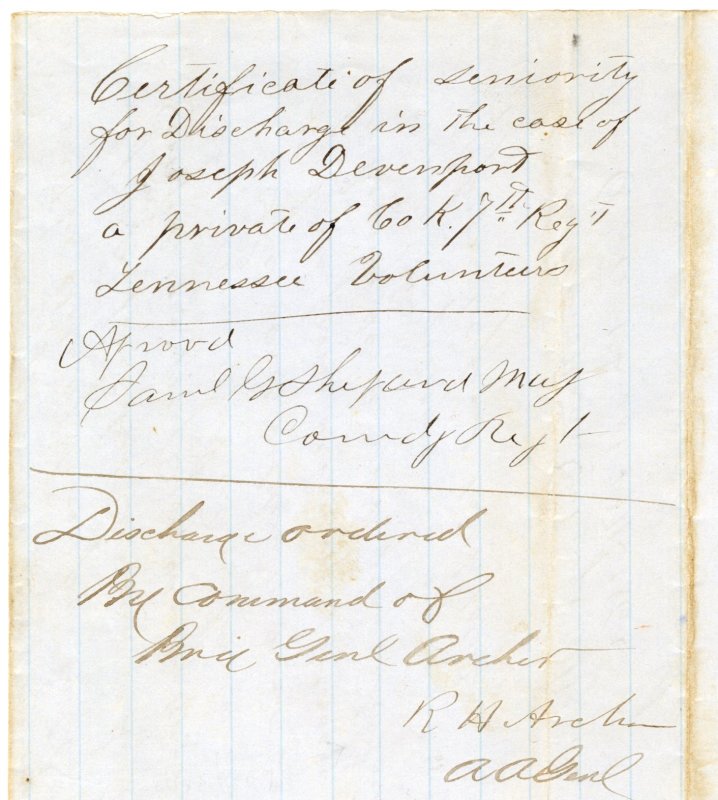 Certificate of seniority
for Discharge in the case of
Joseph Devenport
a private of Co K. 7th Reg't
Tennessee Volunteers
Aprovd
Saml G Shepard Maj
Comdg Regt
Discharge ordered
By command of
Brig Genl Archer
R H Archer
A A Genl